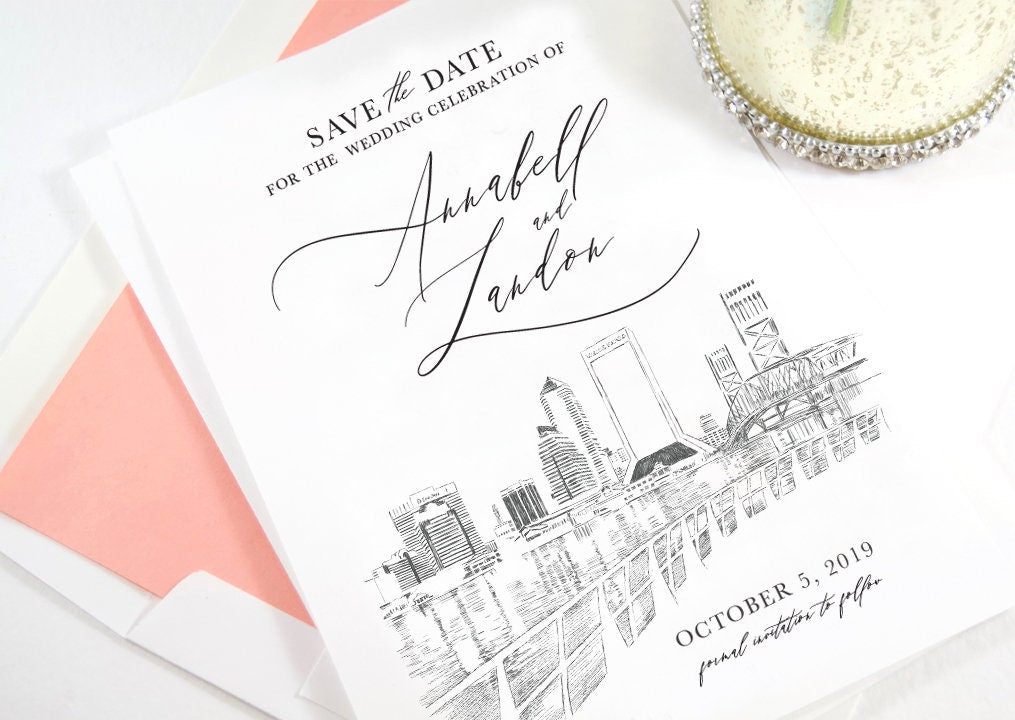 SAVE the DATE
FOR THE WEDDING CELEBRATION OF
Annabell
and
Landon
OCTOBER 5, 2019
formal invitation to follow